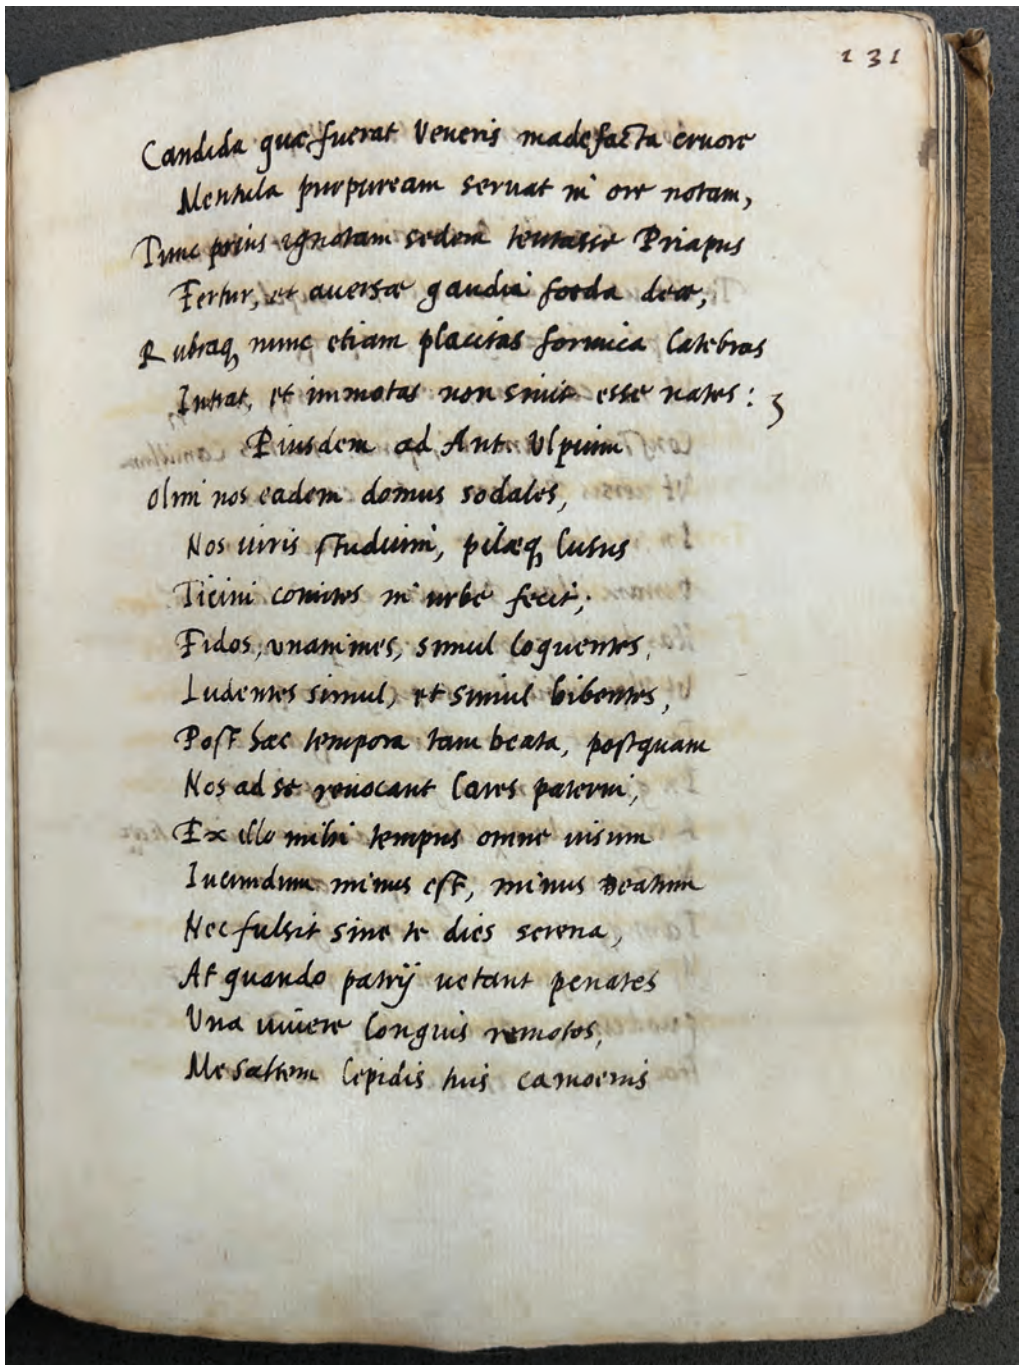 131
Candida quæ fuerat Veneris madefacta cruore
Mentula purpuream seruat in ore notam,
Tunc prius ignotam sedem tentasse Priapus
Fertur, et auersæ gaudia foeda deæ,
Rubraq, nunc etiam placitas formica latebras
Intrat, et immotas non sinit esse nates :
Eiusdem ad Ant. Vlpium
Olim nos eadem domus sodales,
Nos iuris studium, pilæq, lusus
Ticini comites in urbe fecit;
Fidos, unanimes, simul loquentes,
Ludentes simul, et simul bibentes,
Post hæc tempora tam beata, postquam
Nos ad se reuocant lares paterni,
Ex illo mihi tempus omne uisum
Iucundum minus est, minus beatum
Nec fulsit sine te dies serena,
At quando patrij uetant penates
Vna uiuere longius remotos,
Me saltem lepidis tuis camoenis